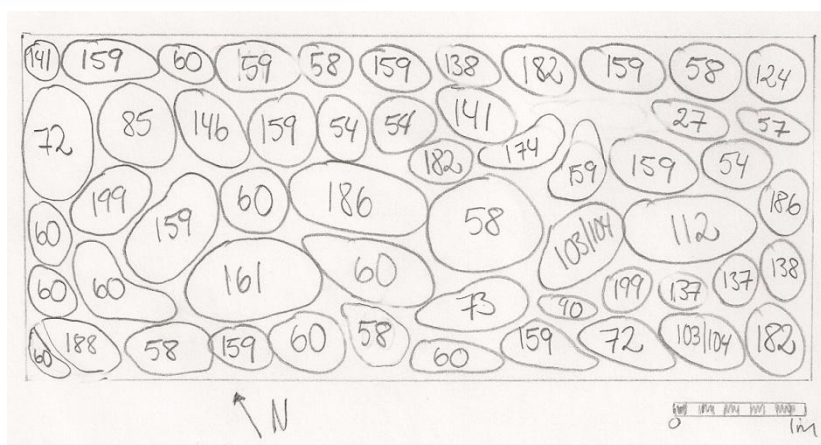 141 159 60 159 58 159 138 182 159 58 124
72 85 146 159 54 54 141 27 57
182 174 159 159 54
199 159 60 186 58 103/104 112 186
60
60 60 161 60 73 90 199 137 137 138
60 188 58 159 60 58 60 159 72 103/104 182
N
0 1m